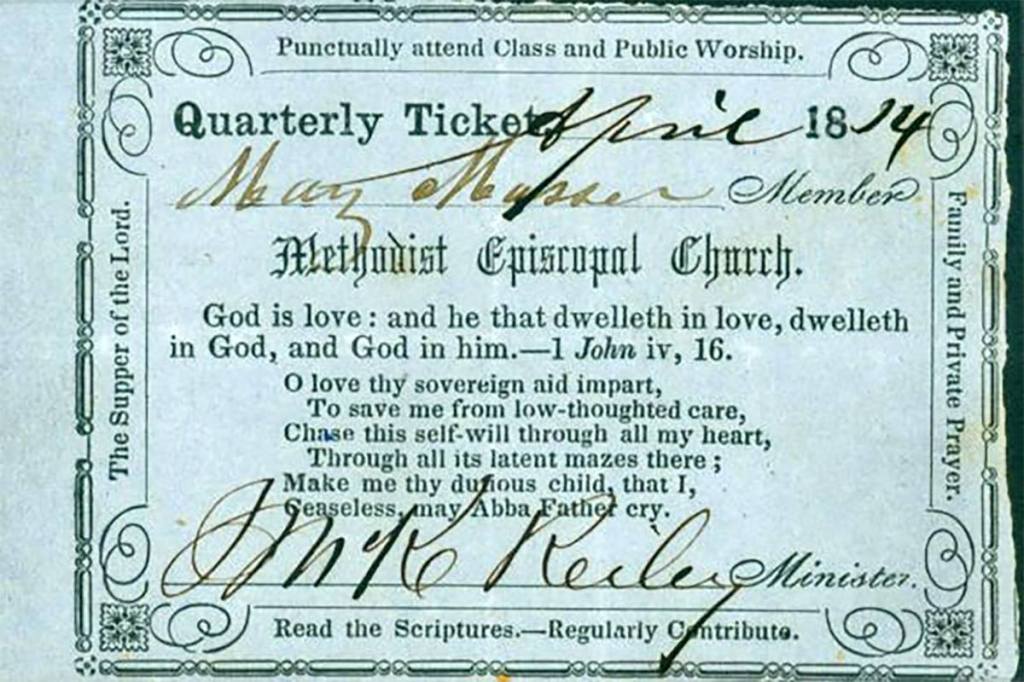 Punctually attend Class and Public Worship.
Quarterly Ticket April 18
May Musser Member
Methodist Episcopal Church.
God is love: and he that dwelleth in love, dwelleth
in God, and God in him.—1 John iv, 16.
O love thy sovereign aid impart,
To save me from low-thoughted care,
Chase this self-will through all my heart,
Through all its latent mazes there;
Make me thy duteous child, that I,
Ceaseless, may Abba Father cry.
J M K Reiley Minister.
Read the Scriptures.—Regularly Contribute.
The Supper of the Lord.
Family and Private Prayer.